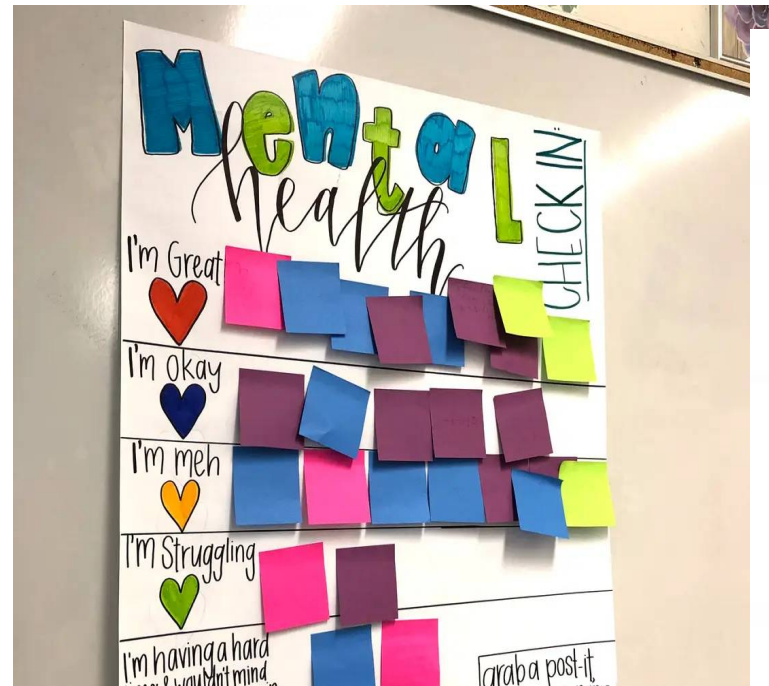 Mental
health
CHECK IN:
I'm Great
I'm okay
I'm meh
I'm Struggling
I'm having a hard
wouldn't mind
grab a post-it,